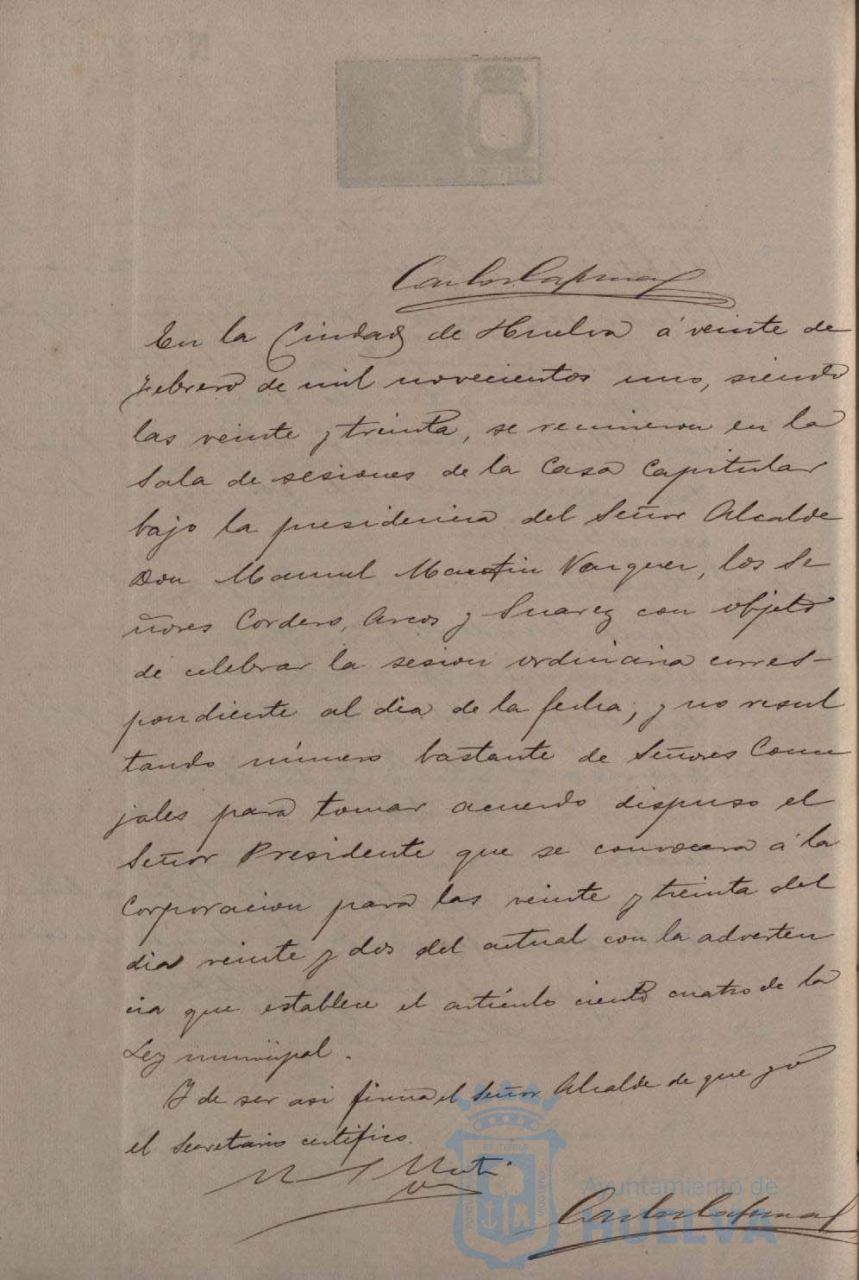 Carlos
En la Ciudad de Huelva á veinte de
Febrero de mil novecientos uno, siendo
las veinte y treinta, se reunieron en la
Sala de sesiones de la Casa Capitular
bajo la presidencia del Señor Alcalde
Don Manuel Martin Vazquez, los Se-
ñores Cordero, Arcos y Suarez con objeto
de celebrar la sesion ordinaria corres-
pondiente al dia de la fecha; y no resul
tando número bastante de Señores Conce
jales para tomar acuerdo dispuso el
Señor Presidente que se convocara á la
Corporacion para las veinte y treinta del
dia veinte y dos del actual con la adverten
cia que establece el artículo ciento cuatro de la
Ley municipal.
Y de ser asi firma el Señor Alcalde de que yo
el Secretario certifico.
Ayuntamiento de
HUELVA
Carlos